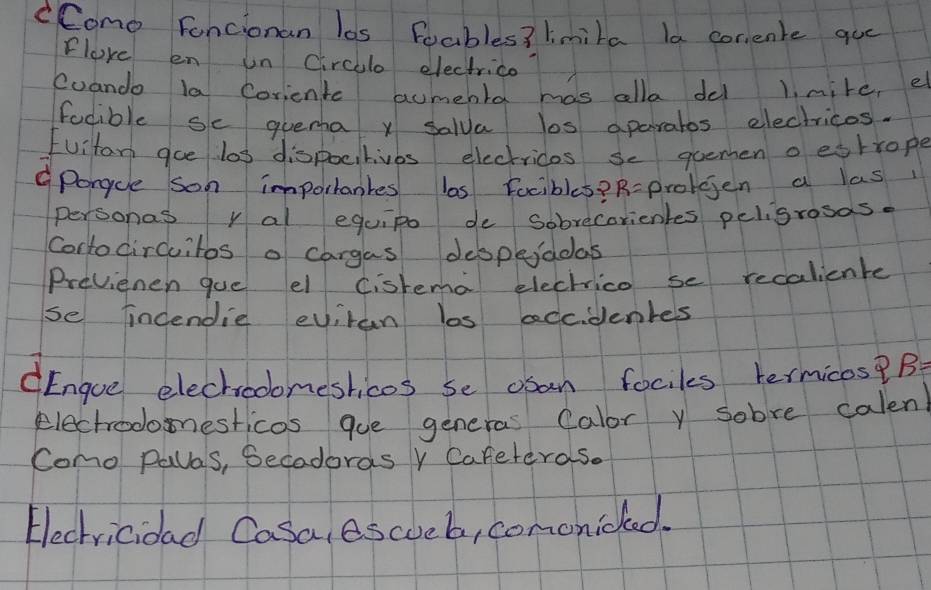 ¿Como Foncionan los Focibles? limita la coriente que
Flulle en un Circulo electrico
Cuando la Coriente aumenta mas alla del limite, el
fucible se quema y salva los aparatos electricos.
Evitan que los dispocitivos electricos se quemen o estrope
¿Porque son importantes los Focibles? R= protejen a las
personas y al equipo de sobrecorientes peligrosas.
Cortocircuitos o cargas despejadas
Previenen que el cistema electrico se recaliente
se incendie evitan los accidentes
¿Enque electrodomesticos se usan fociles termicos? R=
electrodomesticos que generas Calor y sobre calen
Como Pavas, Secadoras y Cafeteras.
Electricidad Casa, escuela, comonidad.